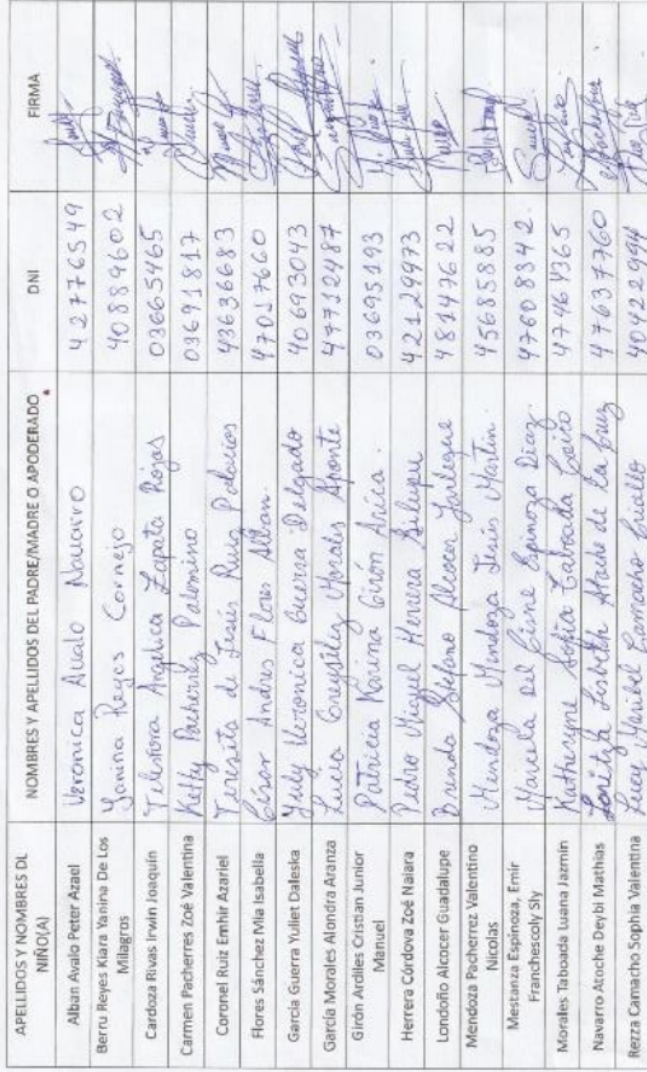 APELLIDOS Y NOMBRES DL NIÑO(A) NOMBRES Y APELLIDOS DEL PADRE/MADRE O APODERADO DNI FIRMA
Alban Avalo Peter Azael Veronica Avalo Navarro 42776549
Berru Reyes Kiara Yanina De Los Milagros Yanina Reyes Cornejo 40889602
Cardoza Rivas Irwin Joaquín Angélica Zapata Rojas 03665465
Carmen Pacherres Zoé Valentina Ketty Pacherrez Palomino 03691817
Coronel Ruiz Emhir Azariel Teresita de Jesús Ruiz Palacios 43636683
Flores Sánchez Mia Isabella César Andres Flores Alban. 47017660
Garcia Guerra Yuliet Daleska Yuly Veronica Guerra Delgado 40693043
García Morales Alondra Aranza Lucia Greysilez Morales Aponte 47712487
Girón Ardiles Cristian Junior Manuel Patricia Karina Girón 03695193
Herrera Córdova Zoé Naiara Pedro Miguel Herrera Silupu 42129973
Londoño Alcocer Guadalupe Brenda Stefano Alcocer 48147622
Mendoza Pacherrez Valentino Nicolas Mendoza Mendoza Jesús Martin. 45685885
Mestanza Espinoza, Emir Franchescoly Sly Marcela del Cisne Espinoza Díaz. 47608342.
Morales Taboada Luana Jazmín Katheryne Sofia Taboada 47464365
Navarro Atoche Deybi Mathías Lisbeth Atoche de la Cruz 47637760
Rezza Camacho Sophia Valentina Lucy Maribel Camacho Criollo 40422994